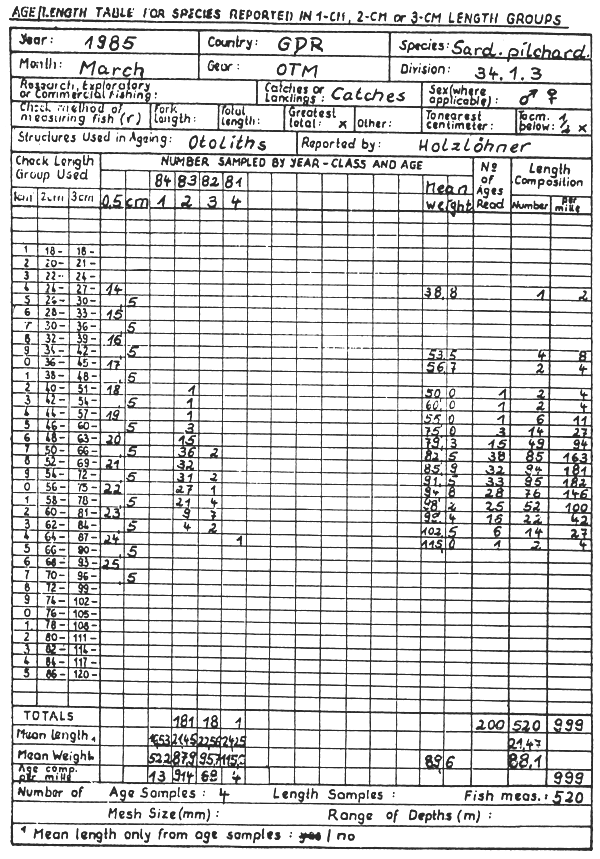 AGE/LENGTH TABLE FOR SPECIES REPORTED IN 1-CM, 2-CM or 3-CM LENGTH GROUPS
Year: 1985 Country: GDR Species: Sard. pilchard.
Month: March Gear: OTM Division: 34.1.3
Research, Exploratory or Commercial Fishing: Catches or Landings: Catches Sex (where applicable): ♂ ♀
Check method of measuring fish (r) Fork length: Total length: Greatest total: x Other: To nearest centimeter: To cm. below: x
Structures Used in Ageing: Otoliths Reported by: Holzlöhner
Check Length Group Used NUMBER SAMPLED BY YEAR-CLASS AND AGE No of Ages Read Length Composition
84 83 82 81 Mean
1cm 2cm 3cm 0,5 cm 1 2 3 4 weight Number per mille
1 18- 18-
2 20- 21-
3 22- 24-
4 24- 27- 14 38,8 1 2
5 26- 30- ,5
6 28- 33- 15
7 30- 36- ,5
8 32- 39- 16
9 34- 42- ,5 53,5 4 8
0 36- 45- 17 56,7 2 4
1 38- 48- ,5
2 40- 51- 18 1 50,0 1 2 4
3 42- 54- ,5 1 60,0 1 2 4
4 44- 57- 19 1 55,0 1 6 11
5 46- 60- ,5 3 75,0 3 14 27
6 48- 63- 20 15 79,3 15 49 94
7 50- 66- ,5 36 2 82,5 38 85 163
8 52- 69- 21 32 85,9 32 94 181
9 54- 72- ,5 31 2 91,5 33 95 182
0 56- 75- 22 27 1 94,8 28 76 146
1 58- 78- ,5 21 4 98,2 25 52 100
2 60- 81- 23 9 7 99,4 16 22 42
3 62- 84- ,5 4 2 102,5 6 14 27
4 64- 87- 24 1 115,0 1 2 4
5 66- 90- ,5
6 68- 93- 25
7 70- 96- ,5
8 72- 99-
9 74- 102-
0 76- 105-
1 78- 108-
2 80- 111-
3 82- 114-
4 84- 117-
5 86- 120-
TOTALS 181 18 1 200 520 999
Mean length, 21,47
Mean Weight 52,2 87,9 95,7 115,2 89,6 88,1
Age comp. per mille 13 914 69 4 999
Number of Age Samples: 4 Length Samples: Fish meas.: 520
Mesh Size (mm): Range of Depths (m):
1 Mean length only from age samples: yes / no